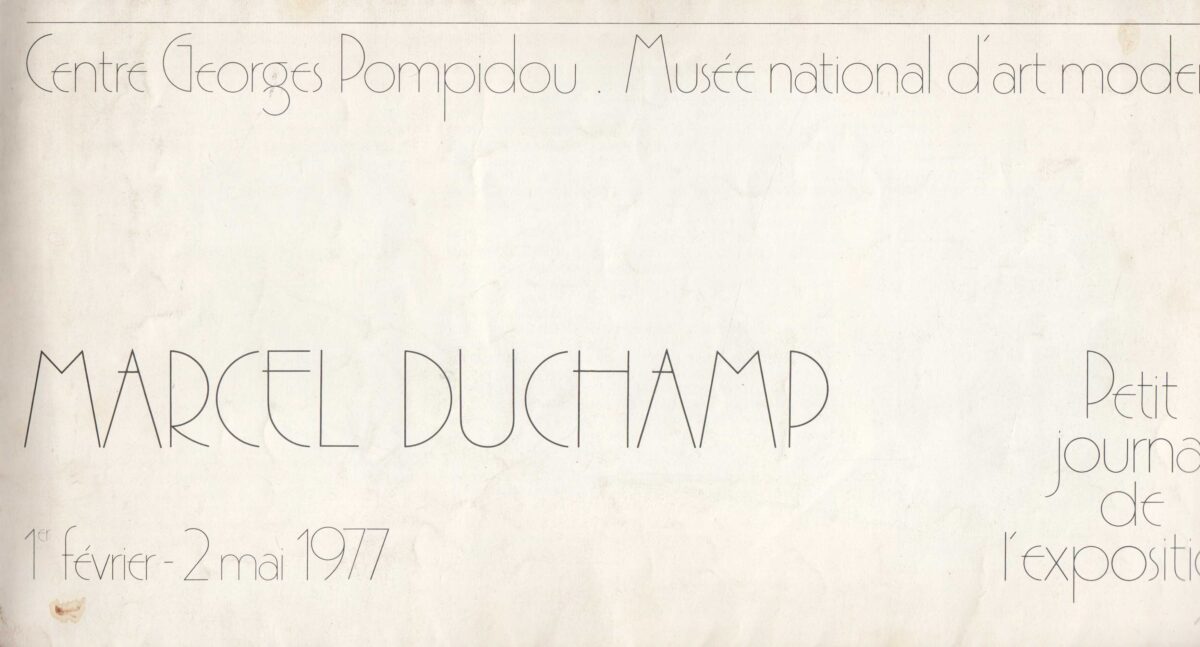 Centre Georges Pompidou . Musée national d'art moder
MARCEL DUCHAMP
1er février - 2 mai 1977
Petit
journa
de
l'expositio